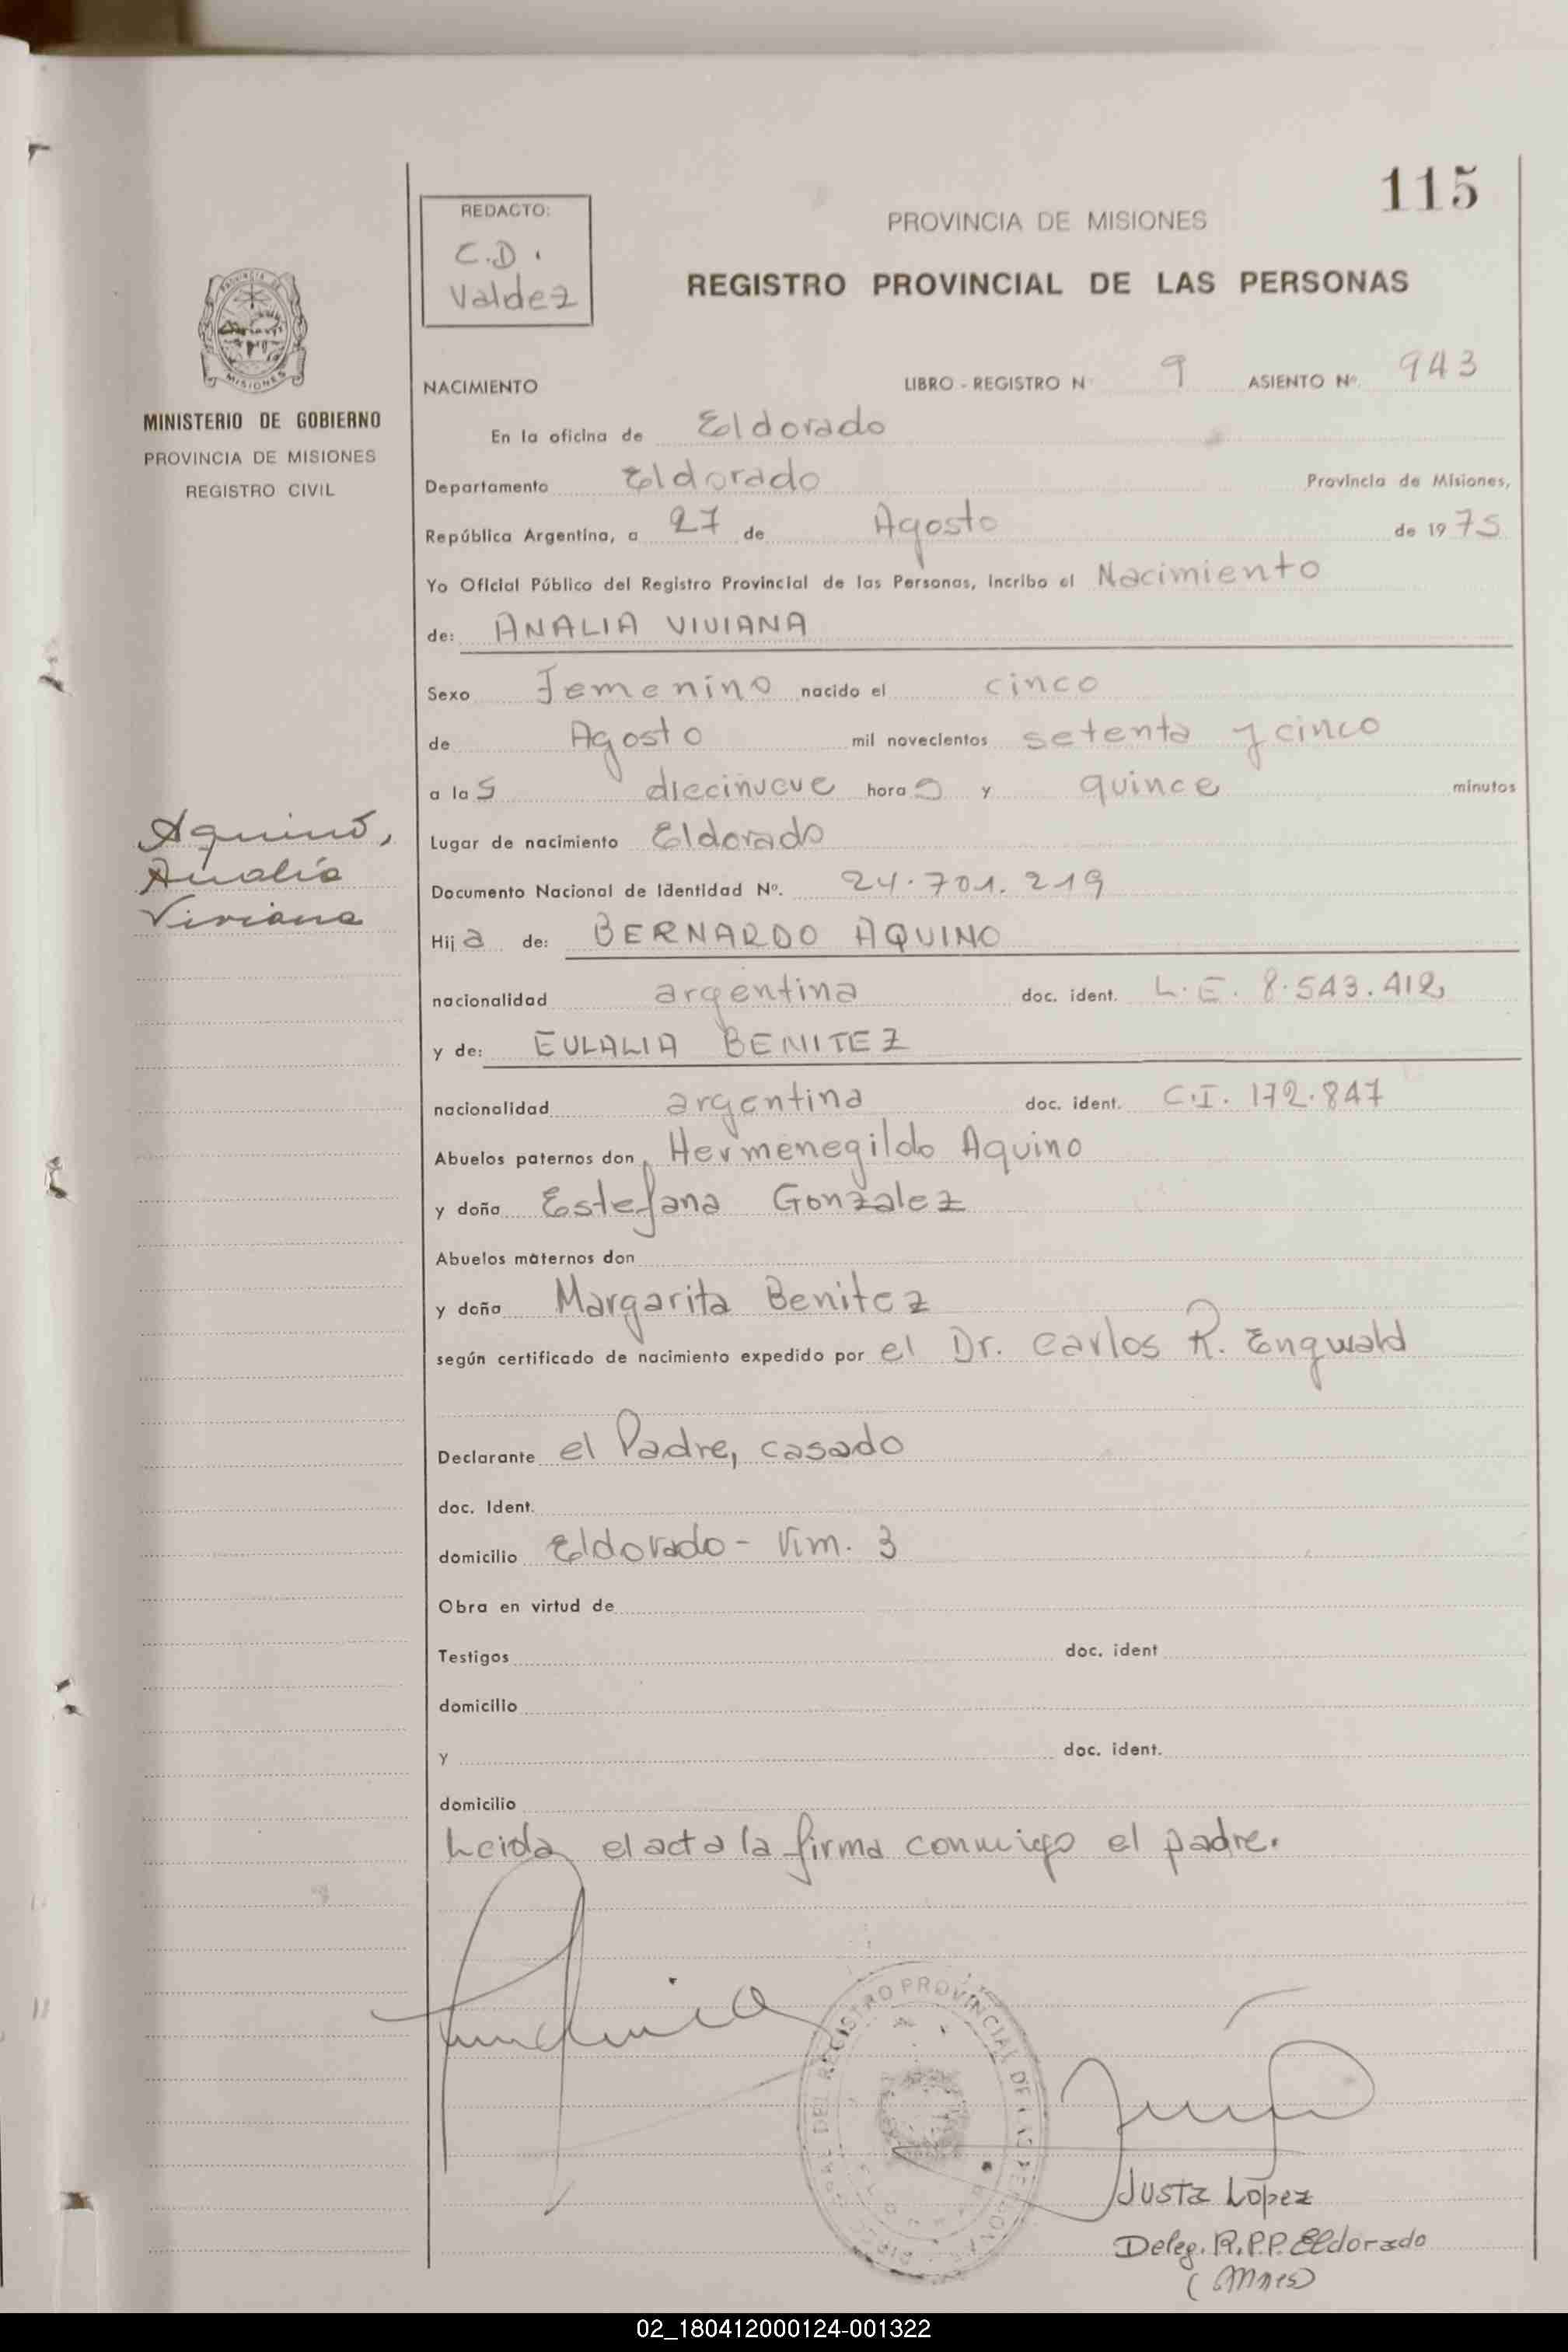 115
REDACTO:
C.D.
Valdez
PROVINCIA DE MISIONES
REGISTRO PROVINCIAL DE LAS PERSONAS
MISIONES
MINISTERIO DE GOBIERNO
PROVINCIA DE MISIONES
REGISTRO CIVIL
NACIMIENTO LIBRO - REGISTRO N° 9 ASIENTO Nº. 943
En la oficina de Eldorado
Departamento Eldorado Provincia de Misiones,
República Argentina, a 27 de Agosto de 1975
Yo Oficial Público del Registro Provincial de las Personas, incribo el Nacimiento
de: ANALIA VIVIANA
Sexo Femenino nacido el cinco
de Agosto mil novecientos setenta y cinco
a las diecinueve horas y quince minutos
Aquino,
Analía
Viviana
Lugar de nacimiento Eldorado
Documento Nacional de Identidad Nº. 24.701.219
Hija de: BERNARDO AQUINO
nacionalidad argentina doc. ident. L.E. 8.543.412,
y de: EULALIA BENITEZ
nacionalidad argentina doc. ident. C.I. 172.847
Abuelos paternos don Hermenegildo Aquino
y doña Estefana Gonzalez
Abuelos maternos don
y doña Margarita Benitez
según certificado de nacimiento expedido por el Dr. Carlos R. Engwald
Declarante el Padre, casado
doc. Ident.
domicilio Eldorado - Km. 3
Obra en virtud de
Testigos doc. ident
domicilio
y doc. ident.
domicilio
Leida el acta la firma conmigo el padre.
DEL REGISTRO PROVINCIAL DE LAS PERSONAS
Justa Lopez
Deleg. R.P.P. Eldorado
(Mnes)
02_180412000124-001322